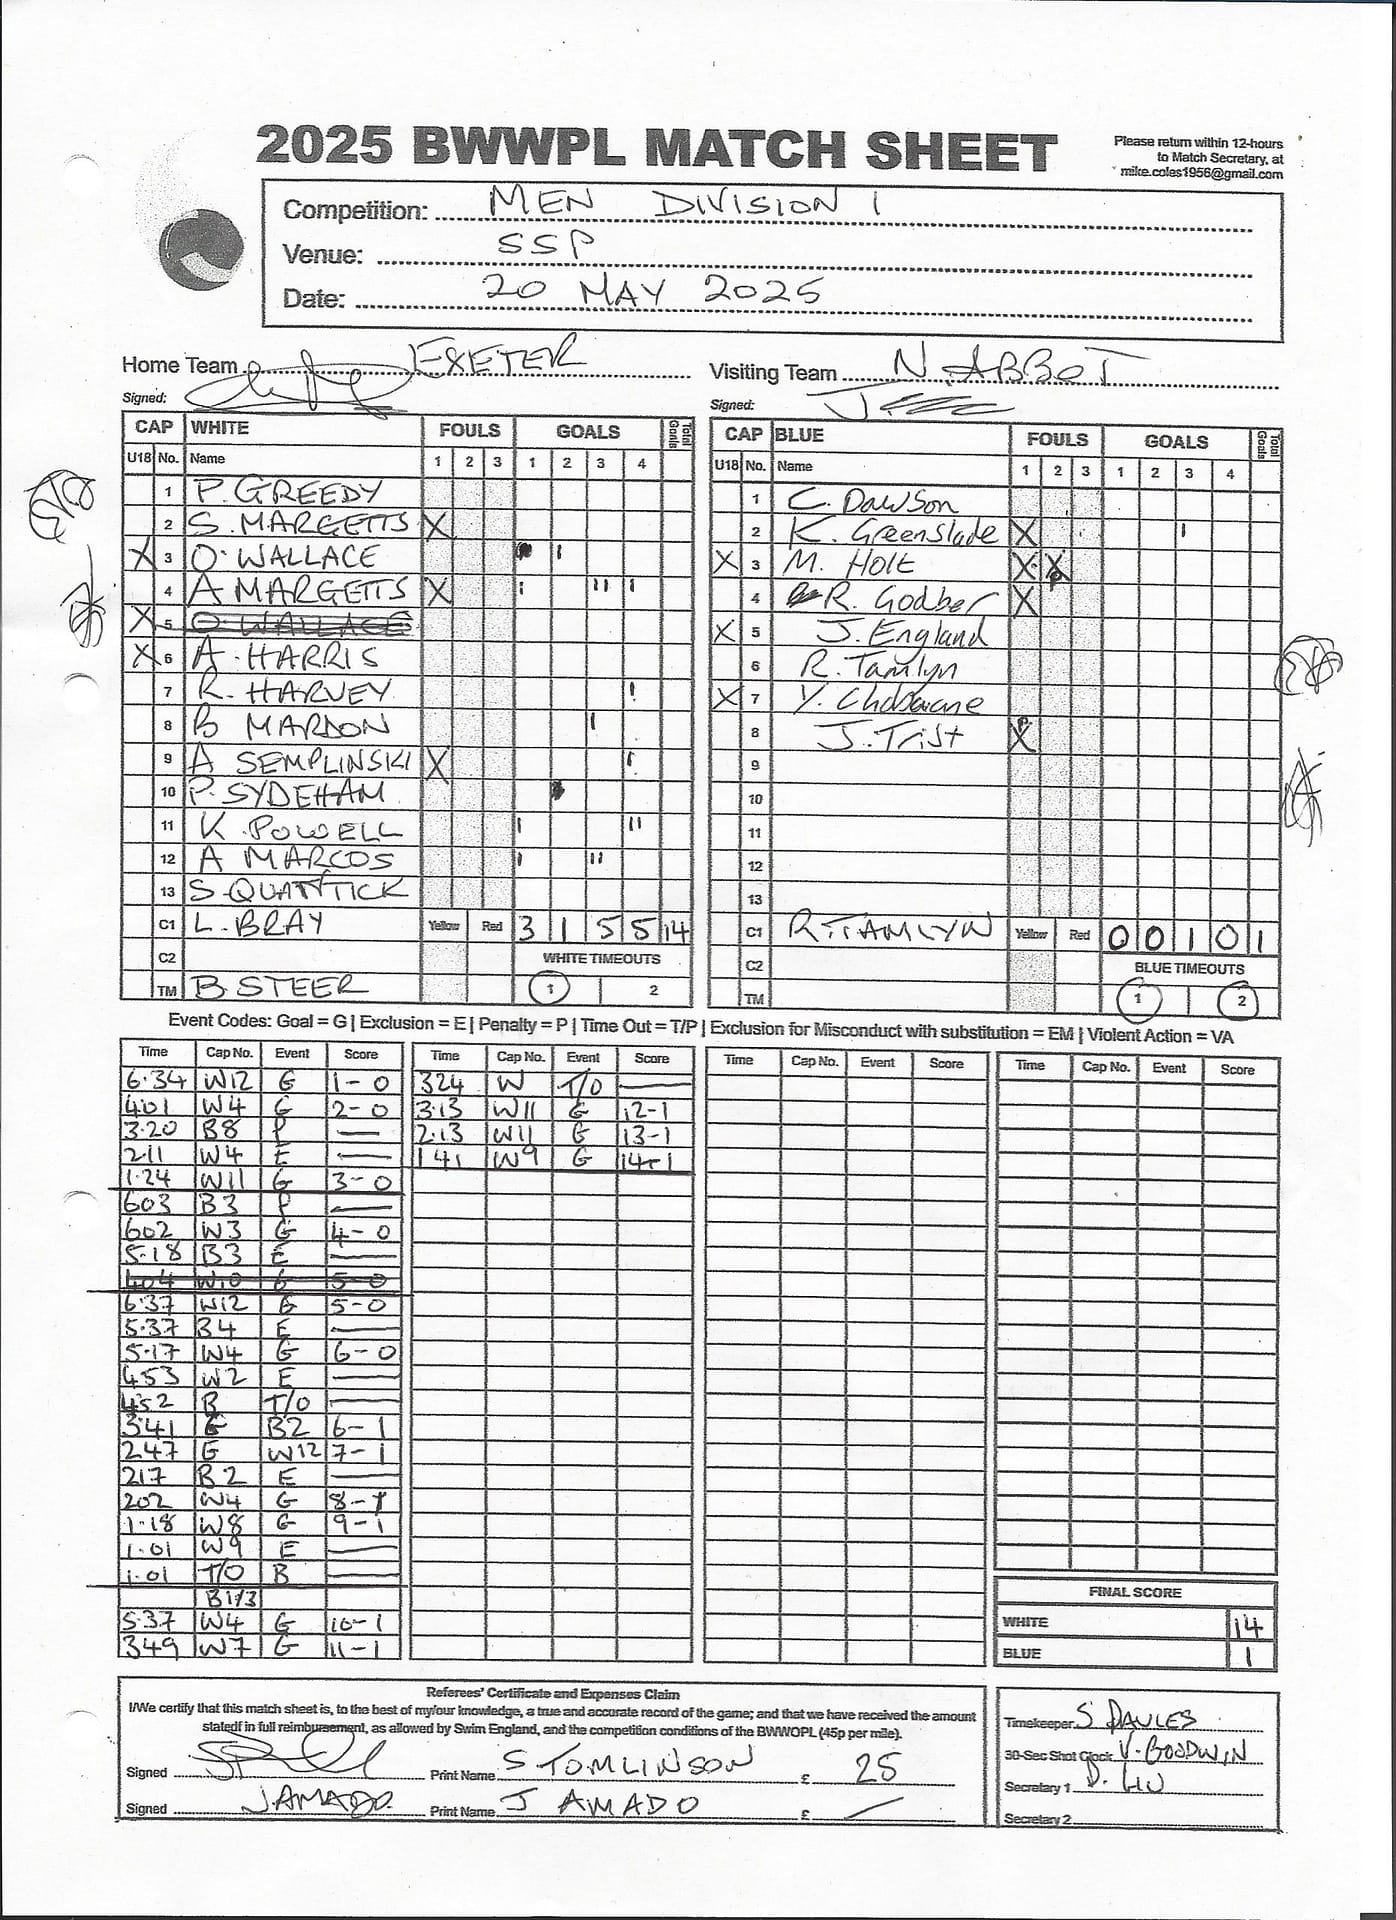 2025 BWWPL MATCH SHEET
Please return within 12-hours
to Match Secretary, at
mike.coles1956@gmail.com
Competition: MEN DIVISION 1
Venue: SSP
Date: 20 MAY 2025
Home Team EXETER
Signed:
Visiting Team N. ABBOT
Signed:
CAP WHITE FOULS GOALS Total Goals
U18 No. Name 1 2 3 1 2 3 4
1 P. GREEDY
2 S. MARGETTS X
X 3 O. WALLACE I
4 A MARGETTS X I II I
X 5 O WALLACE
X 6 A. HARRIS
7 R. HARVEY I
8 B MARDON I
9 A SEMPLINSKI X I
10 P. SYDEHAM
11 K. POWELL I II
12 A MARCOS I II
13 S. QUANTICK
C1 L. BRAY Yellow Red 3 1 5 5 14
C2 WHITE TIMEOUTS
TM B. STEER 1 2
CAP BLUE FOULS GOALS Total Goals
U18 No. Name 1 2 3 1 2 3 4
1 C. Dawson
2 K. Greenslade X I
X 3 M. Holt X X
4 R. Godber X
X 5 J. England
6 R. Tamlyn
X 7 Y.
8 J. Trist X
9
10
11
12
13
C1 R. TAMLYN Yellow Red 0 0 1 0 1
C2 BLUE TIMEOUTS
TM 1 2
Event Codes: Goal = G | Exclusion = E | Penalty = P | Time Out = T/P | Exclusion for Misconduct with substitution = EM | Violent Action = VA
Time Cap No. Event Score
6.34 W12 G 1-0
4.01 W4 G 2-0
3.20 B8 P —
2.11 W4 E —
1.24 W11 G 3-0
603 B3 P —
602 W3 G 4-0
5.18 B3 E —
404 W10 G 5-0
6.37 W12 G 5-0
5.37 B4 E —
5.17 W4 G 6-0
453 W2 E —
452 B T/O —
3.41 G B2 6-1
2.47 G W12 7-1
217 B2 E —
202 W4 G 8-1
1.18 W8 G 9-1
1.01 W9 E —
1.01 T/O B —
B 1/3
5.37 W4 G 10-1
349 W7 G 11-1
Time Cap No. Event Score
324 W T/O —
3.13 W11 G 12-1
2.13 W11 G 13-1
1 41 W9 G 14-1
Time Cap No. Event Score
Time Cap No. Event Score
FINAL SCORE
WHITE 14
BLUE 1
Referees' Certificate and Expenses Claim
I/We certify that this match sheet is, to the best of my/our knowledge, a true and accurate record of the game; and that we have received the amount
statedf in full reimbursement, as allowed by Swim England, and the competition conditions of the BWWOPL (45p per mile).
Signed Print Name S TOMLINSON £ 25
Signed J. AMADO Print Name J AMADO £ —
Timekeeper S DAVIES
30-Sec Shot Clock V. GOODWIN
Secretary 1 D. LIU
Secretary 2